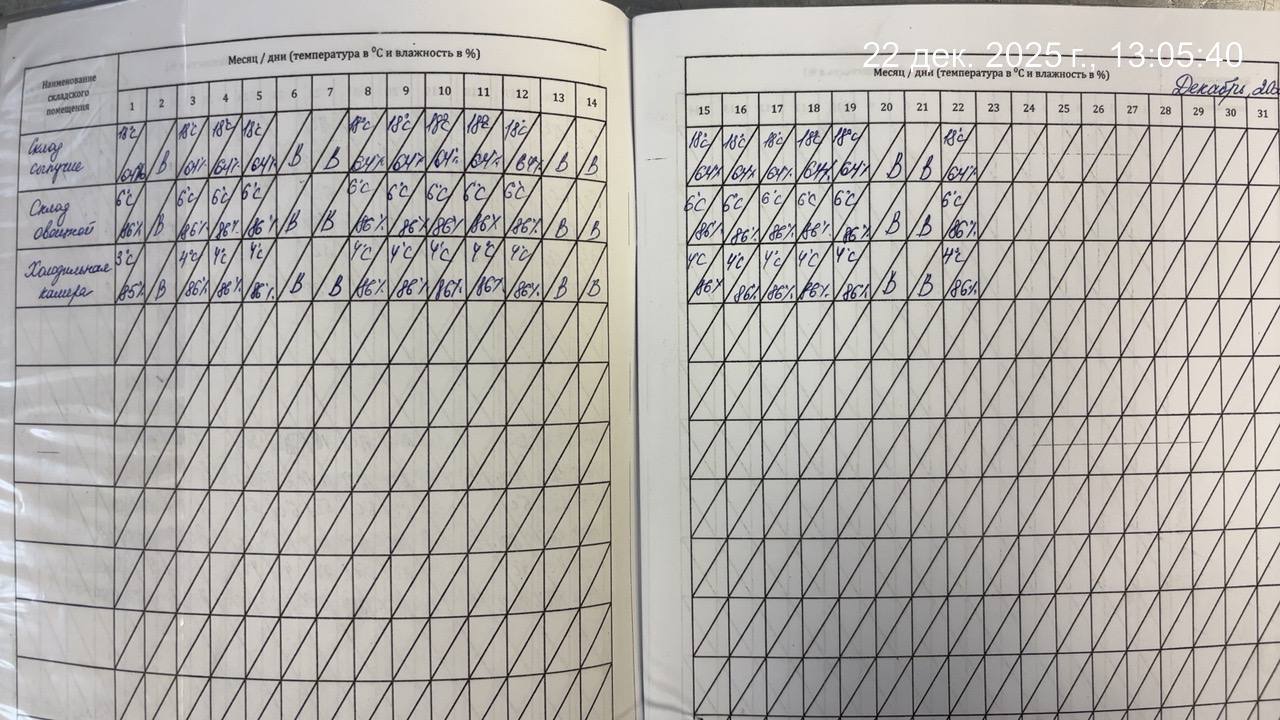 22 дек. 2025 г., 13:05:40
Месяц / дни (температура в ⁰С и влажность в %)
Наименование складского помещения
1 2 3 4 5 6 7 8 9 10 11 12 13 14
Склад сыпучие
18°С 18°С 18°С 18°С 18°С 18°С 18°С 18°С 18°С
64% В 64% 64% 64% В В 64% 64% 64% 64% 64% В В
Склад овощной
6°С 6°С 6°С 6°С 6°С 6°С 6°С 6°С 6°С
86% В 86% 86% 86% В В 86% 86% 86% 86% 86% В В
Холодильная камера
3°С 4°С 4°С 4°С 4°С 4°С 4°С 4°С 4°С
85% В 86% 86% 86% В В 86% 86% 86% 86% 86% В В
Месяц / дни (температура в ⁰С и влажность в %)
Декабрь
15 16 17 18 19 20 21 22 23 24 25 26 27 28 29 30 31
18°С 18°С 18°С 18°С 18°С 18°С
64% 64% 64% 64% 64% В В 64%
6°С 6°С 6°С 6°С 6°С 6°С
86% 86% 86% 86% 86% В В 86%
4°С 4°С 4°С 4°С 4°С 4°С
86% 86% 86% 86% 86% В В 86%